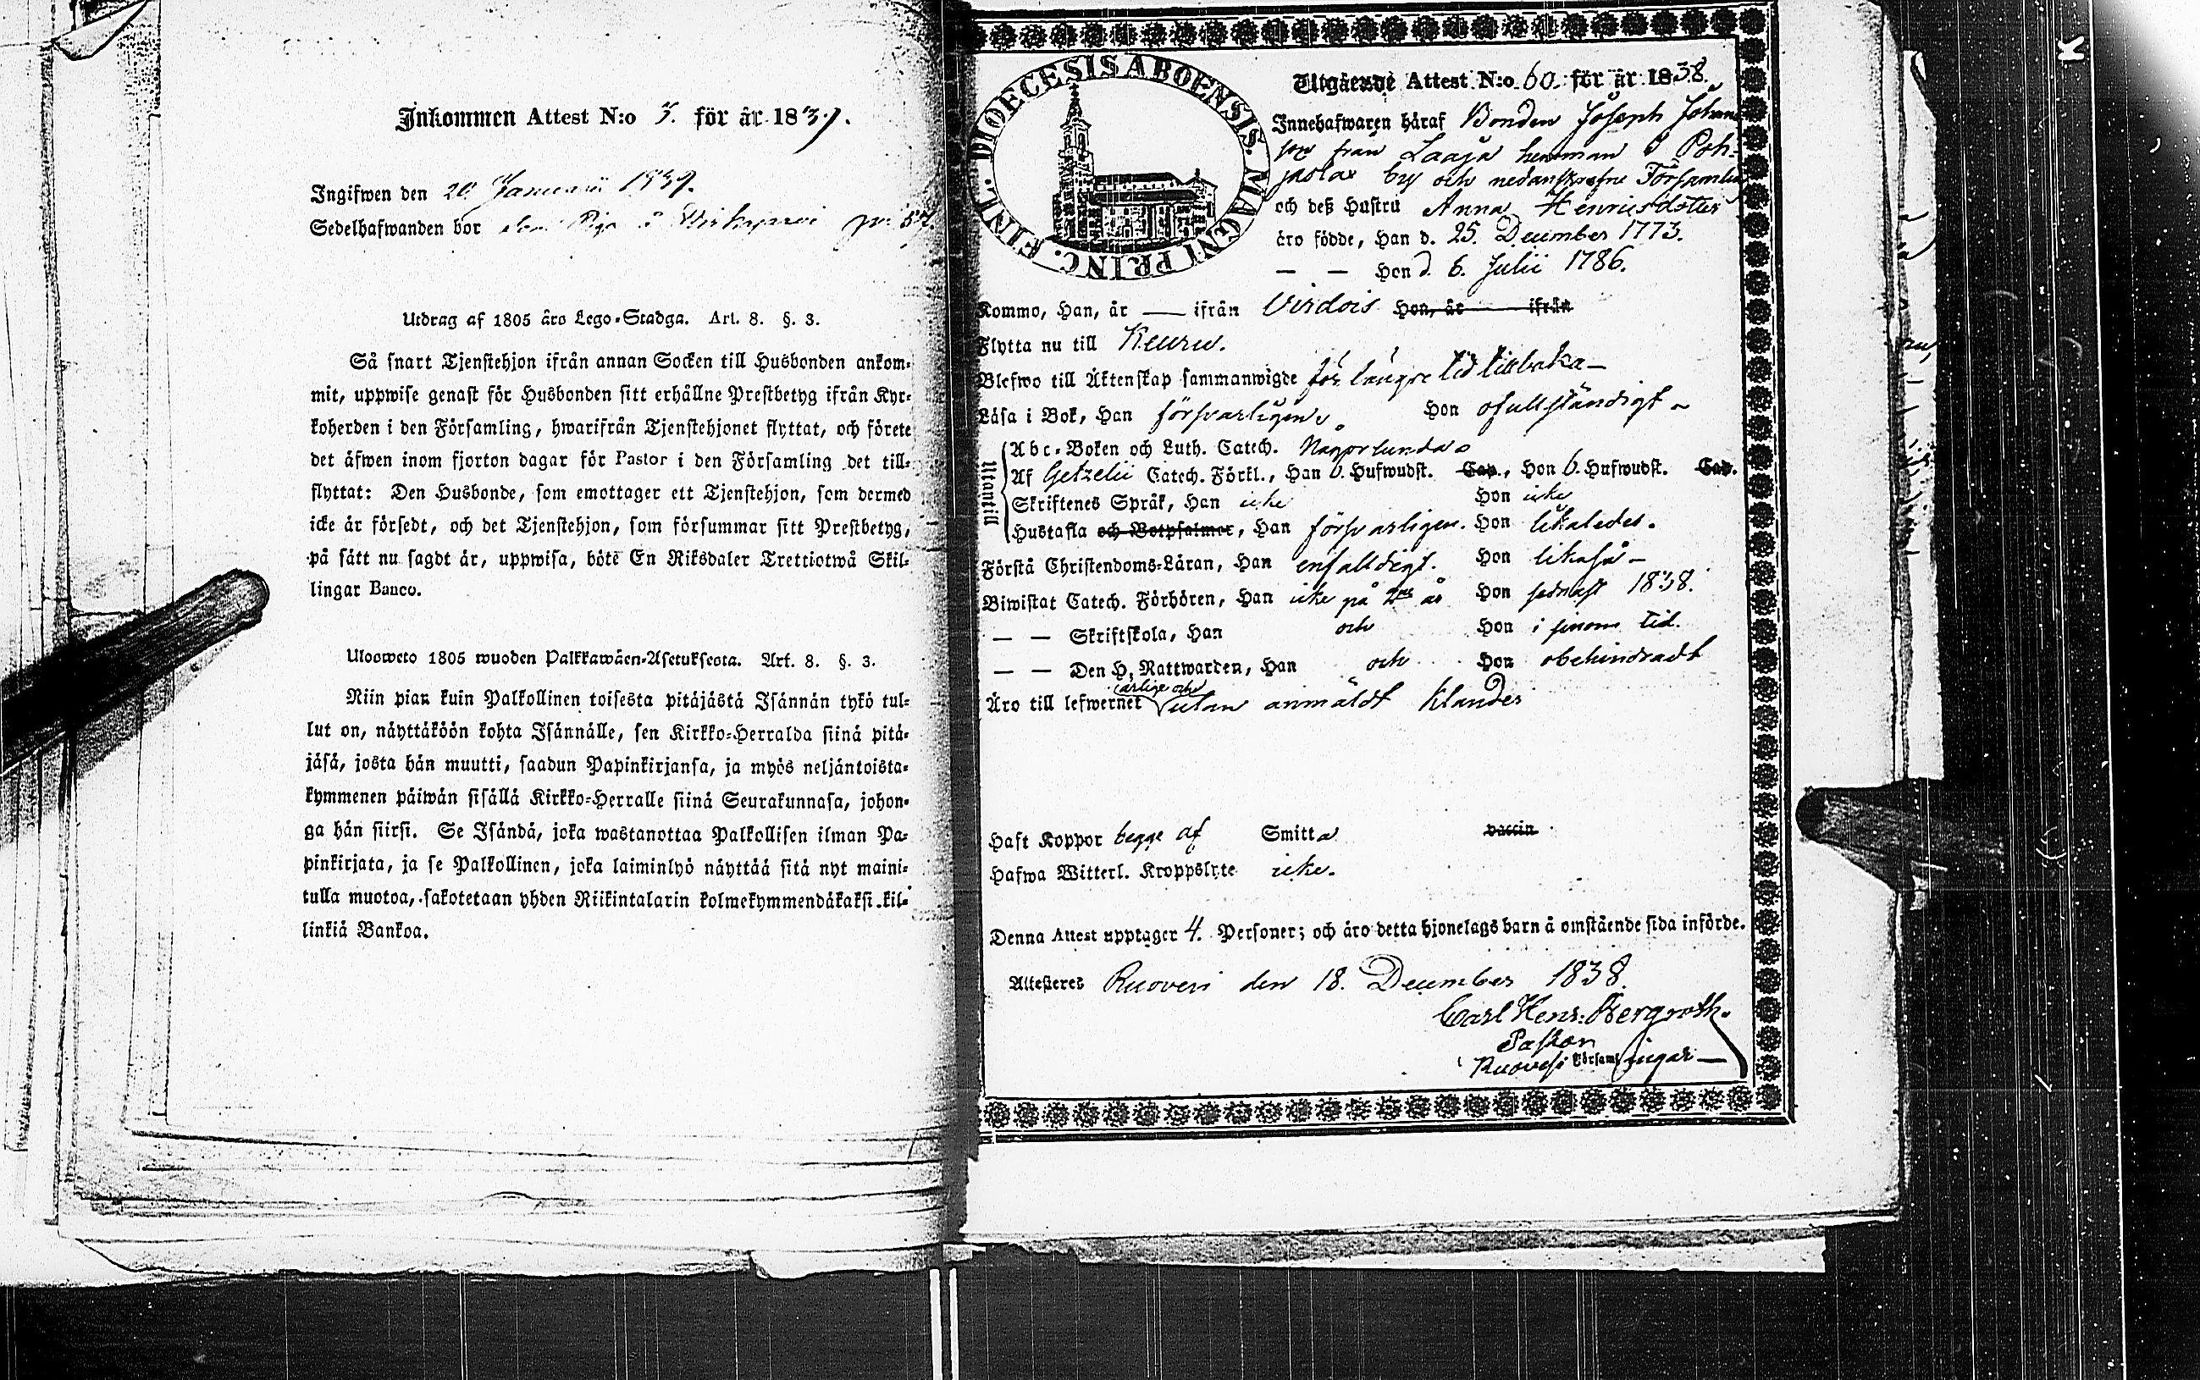 Inkommen Attest N:o 3. för år 1839.
Ingifwen den 20 Januarii 1839.
Sedelhafwanden bor som Piga
Utdrag af 1805 års Lego-Stadga. Art. 8. §. 3.
Så snart Tjenstehjon ifrån annan Socken till Husbonden ankom-
mit, uppwise genast för Husbonden sitt erhållne Prestbetyg ifrån Kyr-
koherden i den Församling, hwarifrån Tjenstehjonet flyttat, och förete
det äfwen inom fjorton dagar för Pastor i den Församling det till-
flyttat: Den Husbonde, som emottager ett Tjenstehjon, som dermed
icke är försedt, och det Tjenstehjon, som försummar sitt Prestbetyg,
på sätt nu sagdt är, uppwisa, böte En Riksdaler Trettiotwå Skil-
lingar Banco.
Uloosweto 1805 wuoden Palkkawäen-Asetuksesta. Art. 8. §. 3.
Niin pian kuin Palkollinen toisesta pitäjästä Isännän tykö tul-
lut on, näyttäköön kohta Isännälle, sen Kirkko-Herralda siinä pitä-
jäsä, josta hän muutti, saadun Papinkirjansa, ja myös neljäntoista-
kymmenen päiwän sisällä Kirkko-Herralle siinä Seurakunnasa, johon-
ga hän siirsi. Se Isändä, joka wastanottaa Palkollisen ilman Pa-
pinkirjata, ja se Palkollinen, joka laiminlyö näyttää sitä nyt maini-
tulla muotoa, sakotetaan yhden Riikintalarin kolmekymmendäkaksi kil-
linkiä Bankoa.
DIOECESIS ABOENSIS. MAGNI PRINC. FINL.
Utgående Attest N:o 60. för år 1838.
Innehafwaren häraf Bonden Joseph Johans
son från Laaja hemman i Poh-
jaslax by och nedanskrefne Församling
och deß Hustru Anna Henricsdotter
äro födde, Han d. 25. December 1773.
— — Hon d. 6. Julii 1786.
Kommo, Han, år — ifrån Virdois Hon, år — ifrån
Flytta nu till Keuru.
Blefwo till Äktenskap sammanwigde för längre tid tillbaka —
Läsa i Bok, Han försvarligen. Hon ofullständigt
Utantill
Abc-Boken och Luth. Catech. Någorlunda
Af Getzelii Catech. Förkl., Han 6. Hufwudst. Cap., Hon 6. Hufwudst. Cap.
Skriftenes Språk, Han icke Hon icke
Hustafla och Botpsalmer, Han försvarligen. Hon likaledes.
Förstå Christendoms-Läran, Han enfaldigt. Hon likaså —
Biwistat Catech. Förhören, Han icke på år Hon sednast 1838.
— — Skriftskola, Han och Hon i sinom tid.
— — Den H. Nattwarden, Han och Hon obehindradt
ärlige och
Äro till lefwernet utan anmäldt klander
Haft Koppor begge af Smitta vaccin
Hafwa Witterl. Kroppslyte icke.
Denna Attest upptager 4. Personer; och äro detta hjonelags barn å omstående sida införde.
Attesteres Ruovesi den 18. December 1838.
Carl Henr. Bergroth.
Pastor
i Ruovesi Församlingar —
K